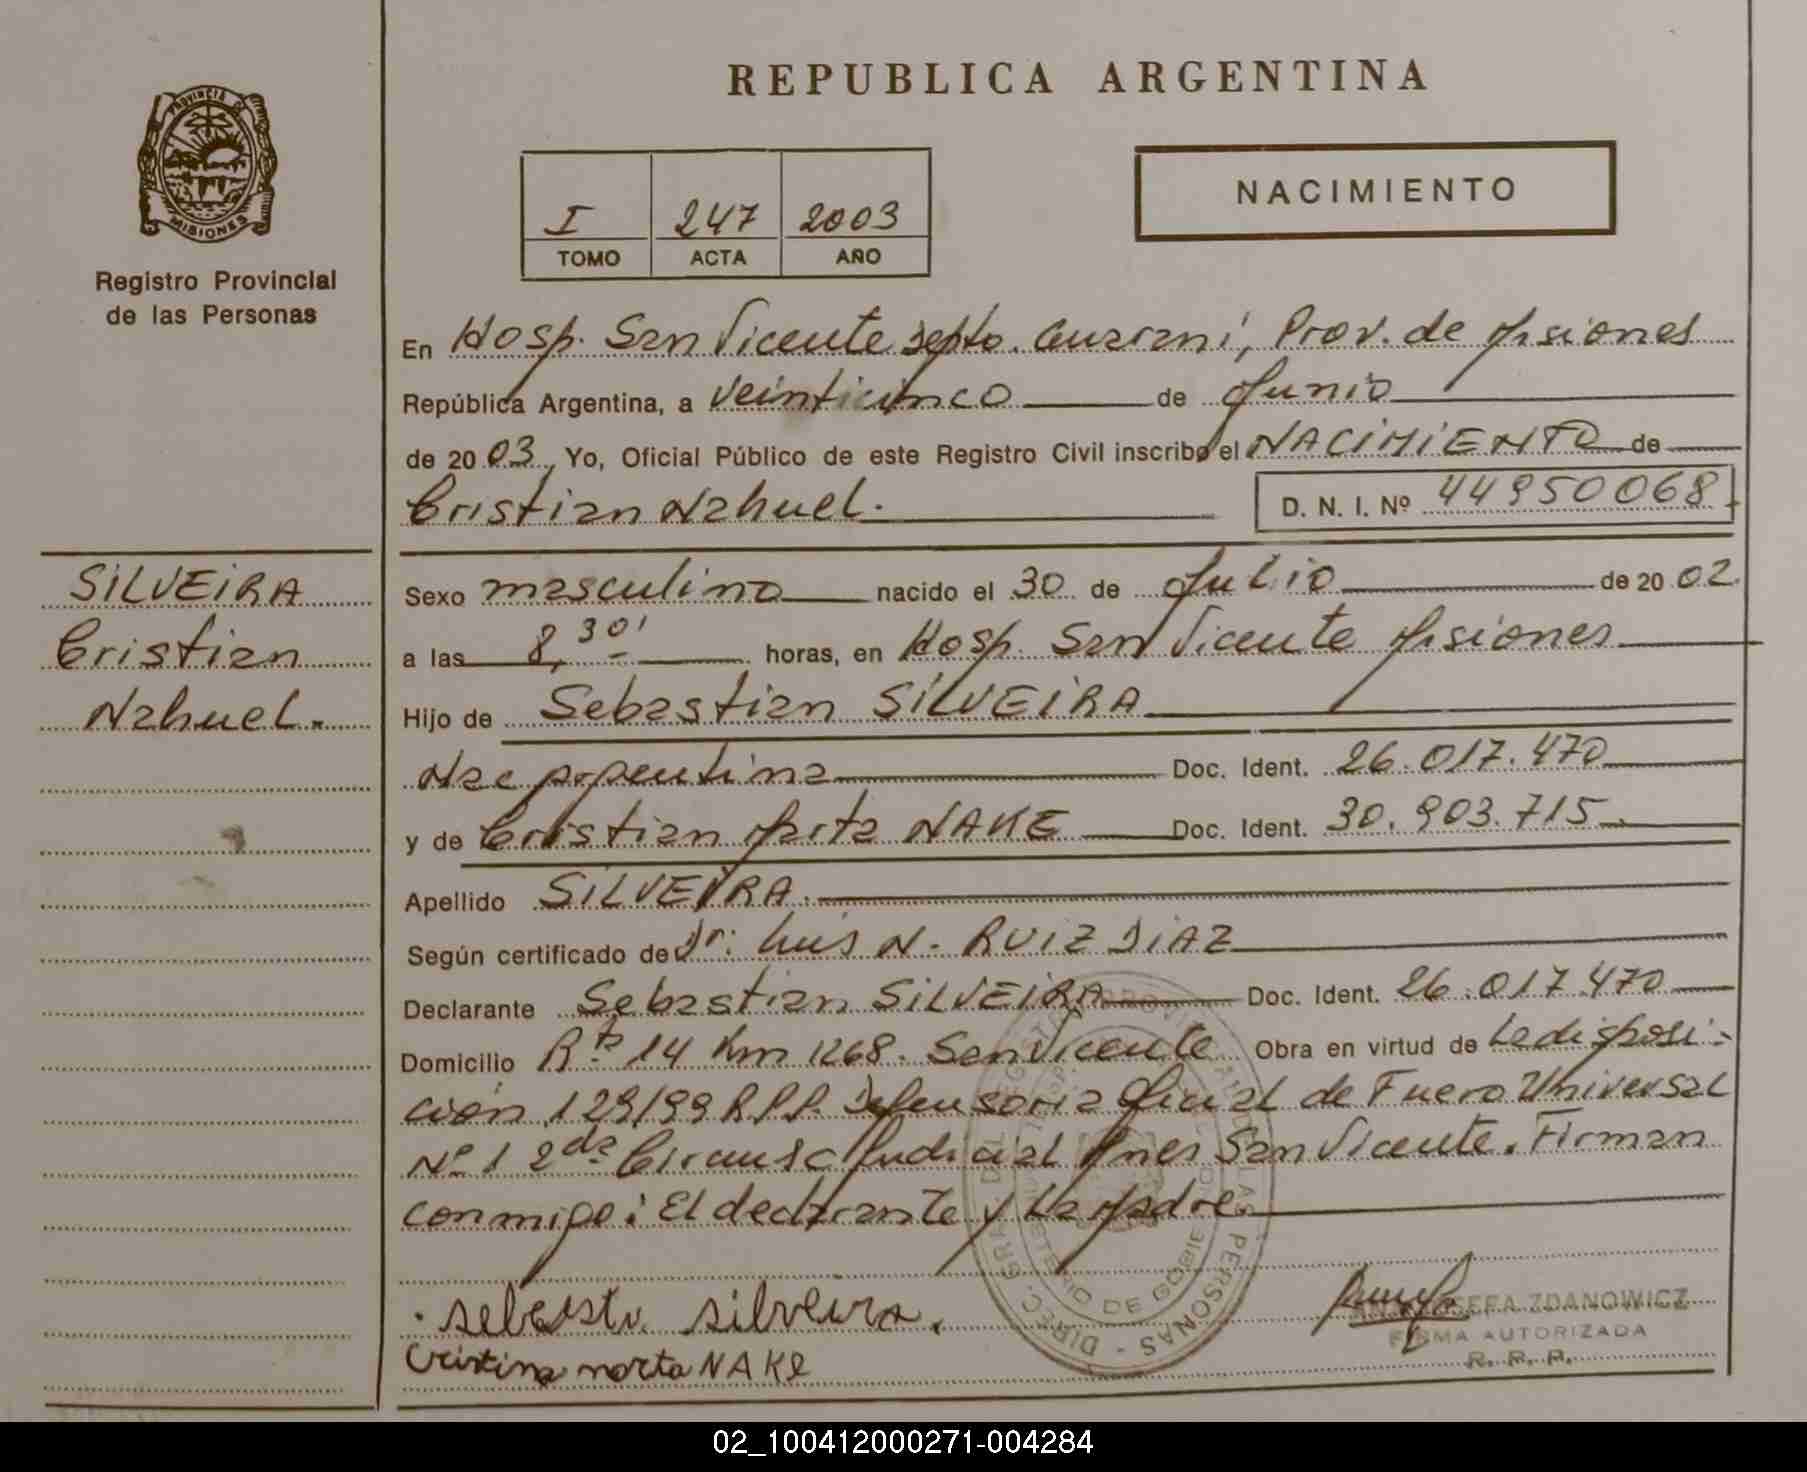 REPUBLICA ARGENTINA
PROVINCIA DE
MISIONES
Registro Provincial
de las Personas
I 247 2003
TOMO ACTA AÑO
NACIMIENTO
En Hosp. San Vicente Depto. Guaraní, Prov. de Misiones
República Argentina, a veinticinco de Junio
de 20 03 Yo, Oficial Público de este Registro Civil inscribo el NACIMIENTO de
Cristian Nahuel. D. N. I. Nº 44950068
SILVEIRA
Cristian
Nahuel.
Sexo masculino nacido el 30 de Julio de 20 02
a las 8,30' horas, en Hosp. San Vicente Misiones
Hijo de Sebastian SILVEIRA
Nac Argentina Doc. Ident. 26.017.470
y de Cristian Marta NAKE Doc. Ident. 30.903.715
Apellido SILVEIRA.
Según certificado de Dr: Luis N. RUIZ DIAZ
Declarante Sebastian SILVEIRA Doc. Ident. 26.017.470
Domicilio Rta 14 Km 1268. San Vicente Obra en virtud de La disposi-
ción 129/99 R.P.P. Defensoria Oficial de Fuero Universal
Nº 1 2da Circunsc Judicial Mnes San Vicente. Firman
conmigo: El declarante y La Madre
silveira.
Cristina marta NAKe
ZDANOWICZ
FIRMA AUTORIZADA
R. P. P.
PERSONAS - DIREC. GRAL. DEL REGISTRO PROVINCIAL DE LAS
MINISTERIO DE GOBIERNO
02_100412000271-004284